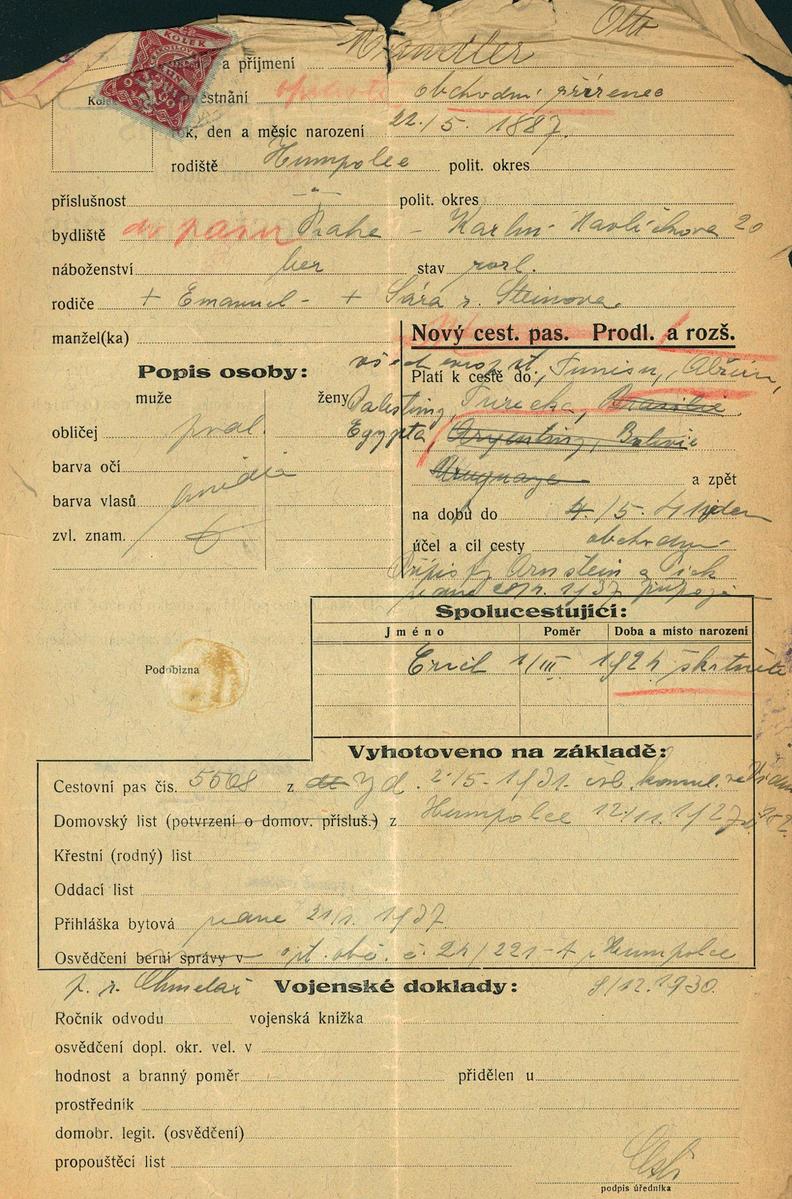 Otto
a příjmení Mandler
KOLEK
Kolek
městnání obchodní příručí
rok, den a měsíc narození 22./5. 1887.
rodiště Humpolec polit. okres
příslušnost -"- polit. okres
bydliště do pasu Praha - Karlín - Havlíčkova 20
náboženství bez stav rozl.
rodiče + Emanuel - + Sára r. Steinova.
manžel(ka)
Nový cest. pas. Prodl. a rozš.
Popis osoby:
muže ženy
Platí k cestě do: Tunisu, Alžíru,
Palestiny, Turecka, Brasilie
Egypta, Argentiny, Bolivie
Uruguaye a zpět
obličej
barva očí
barva vlasů
zvl. znam.
na dobu do 4./5. 41
účel a cíl cesty obchodní
Spolucestující:
Jméno Poměr Doba a místo narození
1/III 1924 škrtnuto
Podobizna
Vyhotoveno na základě:
Cestovní pas čís. 5508 z d. 2/5. 1931.
Domovský list (potvrzení o domov. přísluš.) z Humpolce 12./11. 1927
Křestní (rodný) list
Oddací list
Přihláška bytová 21/1. 1937
Osvědčení berní správy v č. 24/221-4 Humpolce
Vojenské doklady: 8/12. 1930.
Ročník odvodu vojenská knížka
osvědčení dopl. okr. vel. v
hodnost a branný poměr přidělen u
prostředník
domobr. legit. (osvědčení)
propouštěcí list
podpis úředníka